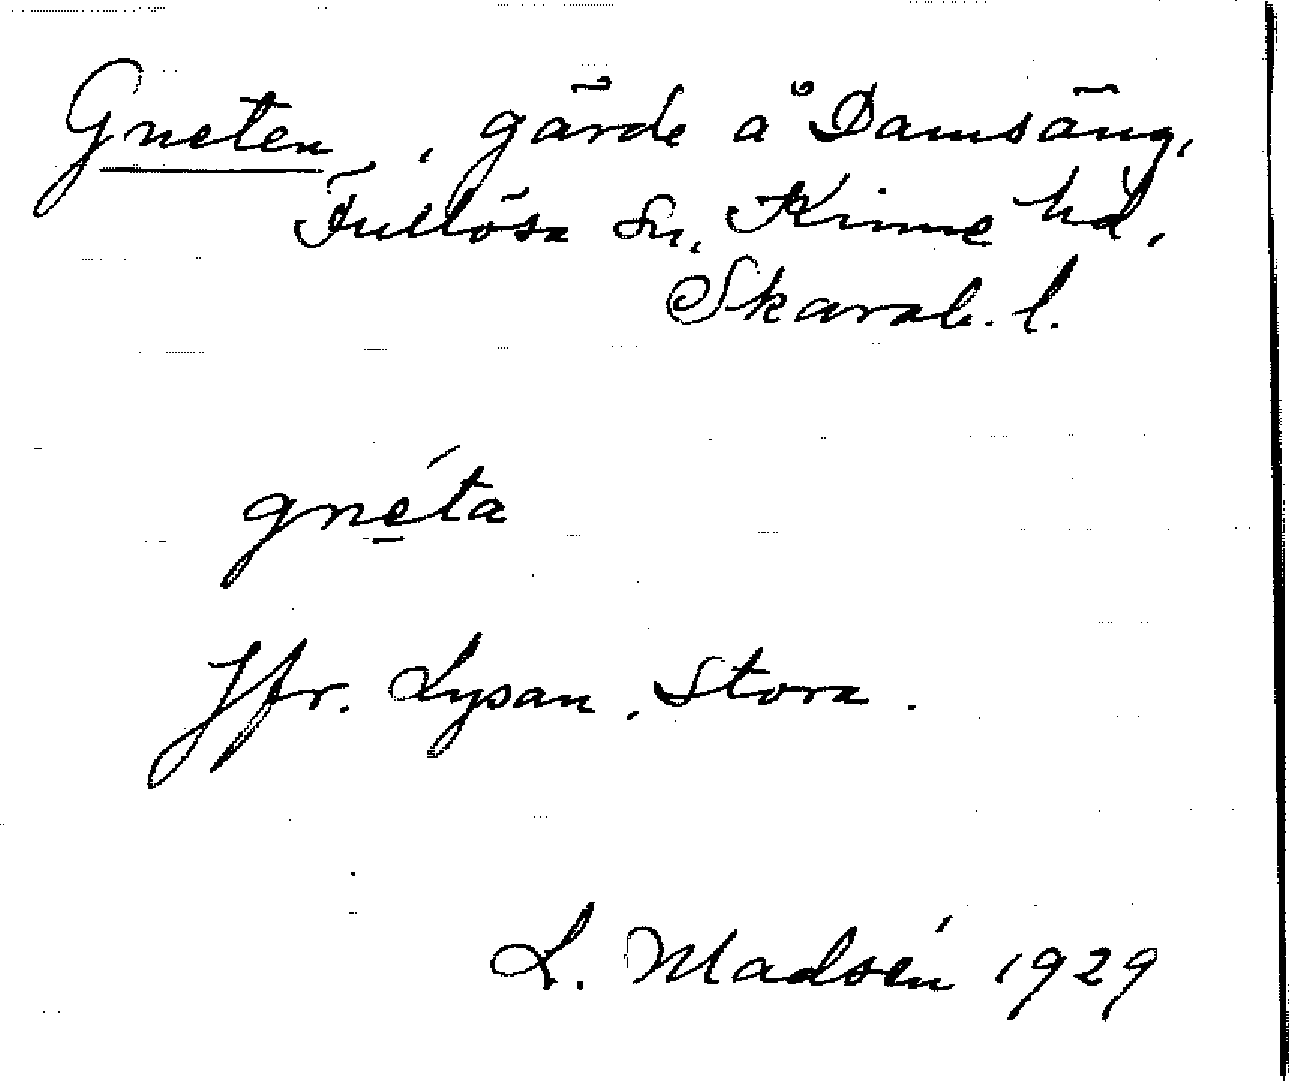 Gneten, gärde å Damsäng,
Fullösa sn, Kinne hd,
Skarab. l.
gnéta
Jfr. Lysan, Stora.
L. Madsén 1929